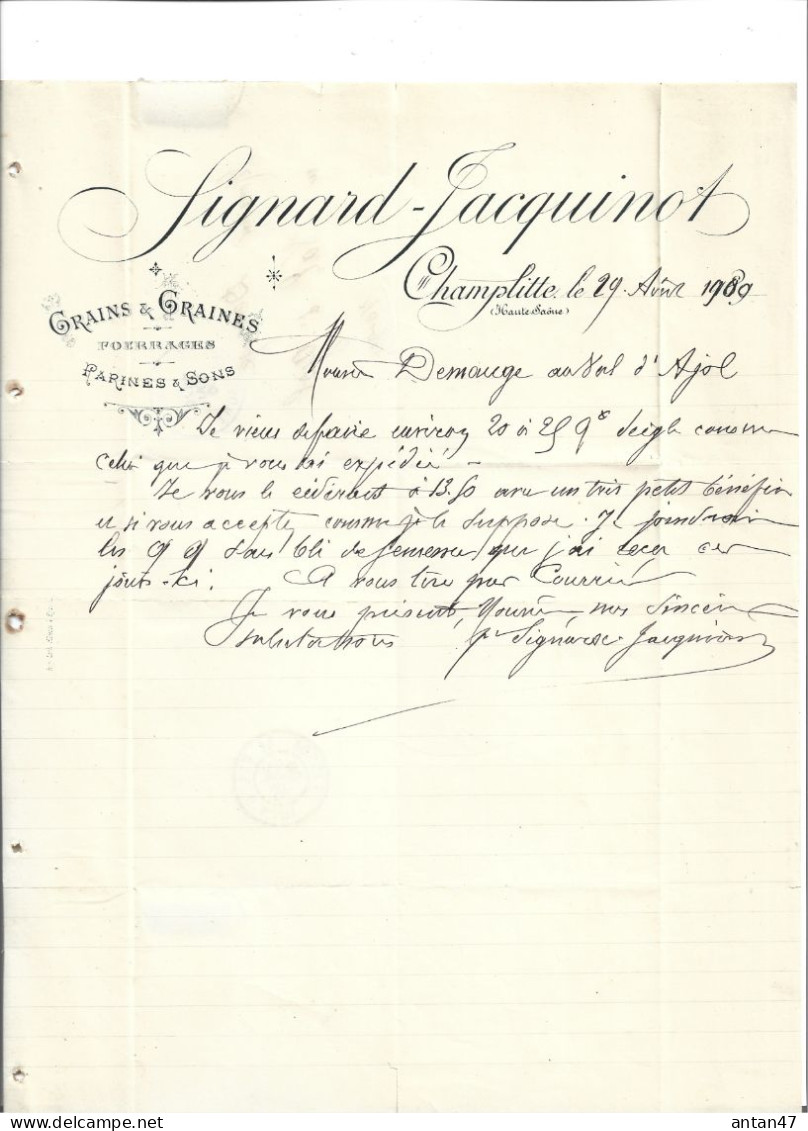 Signard-Jacquinot
Champlitte, le 29 Août 1909
(Haute-Saône)
GRAINS & GRAINES
FOURRAGES
FARINES & SONS
Demange au Val d'Ajol
Je viens de faire environ 20 à 25 qx seigle comme
celui que je vous ai expédié
Je vous le céderait à 13.50 avec un très petit bénéfice
et si vous acceptez comme je le suppose. Je joindrais
les 9 q sous blé de semences que j'ai reçu ces
jours-ci. A vous lire par Courrier
Je vous présente, nos Sincères
salutations Signard Jacquinot
antan47